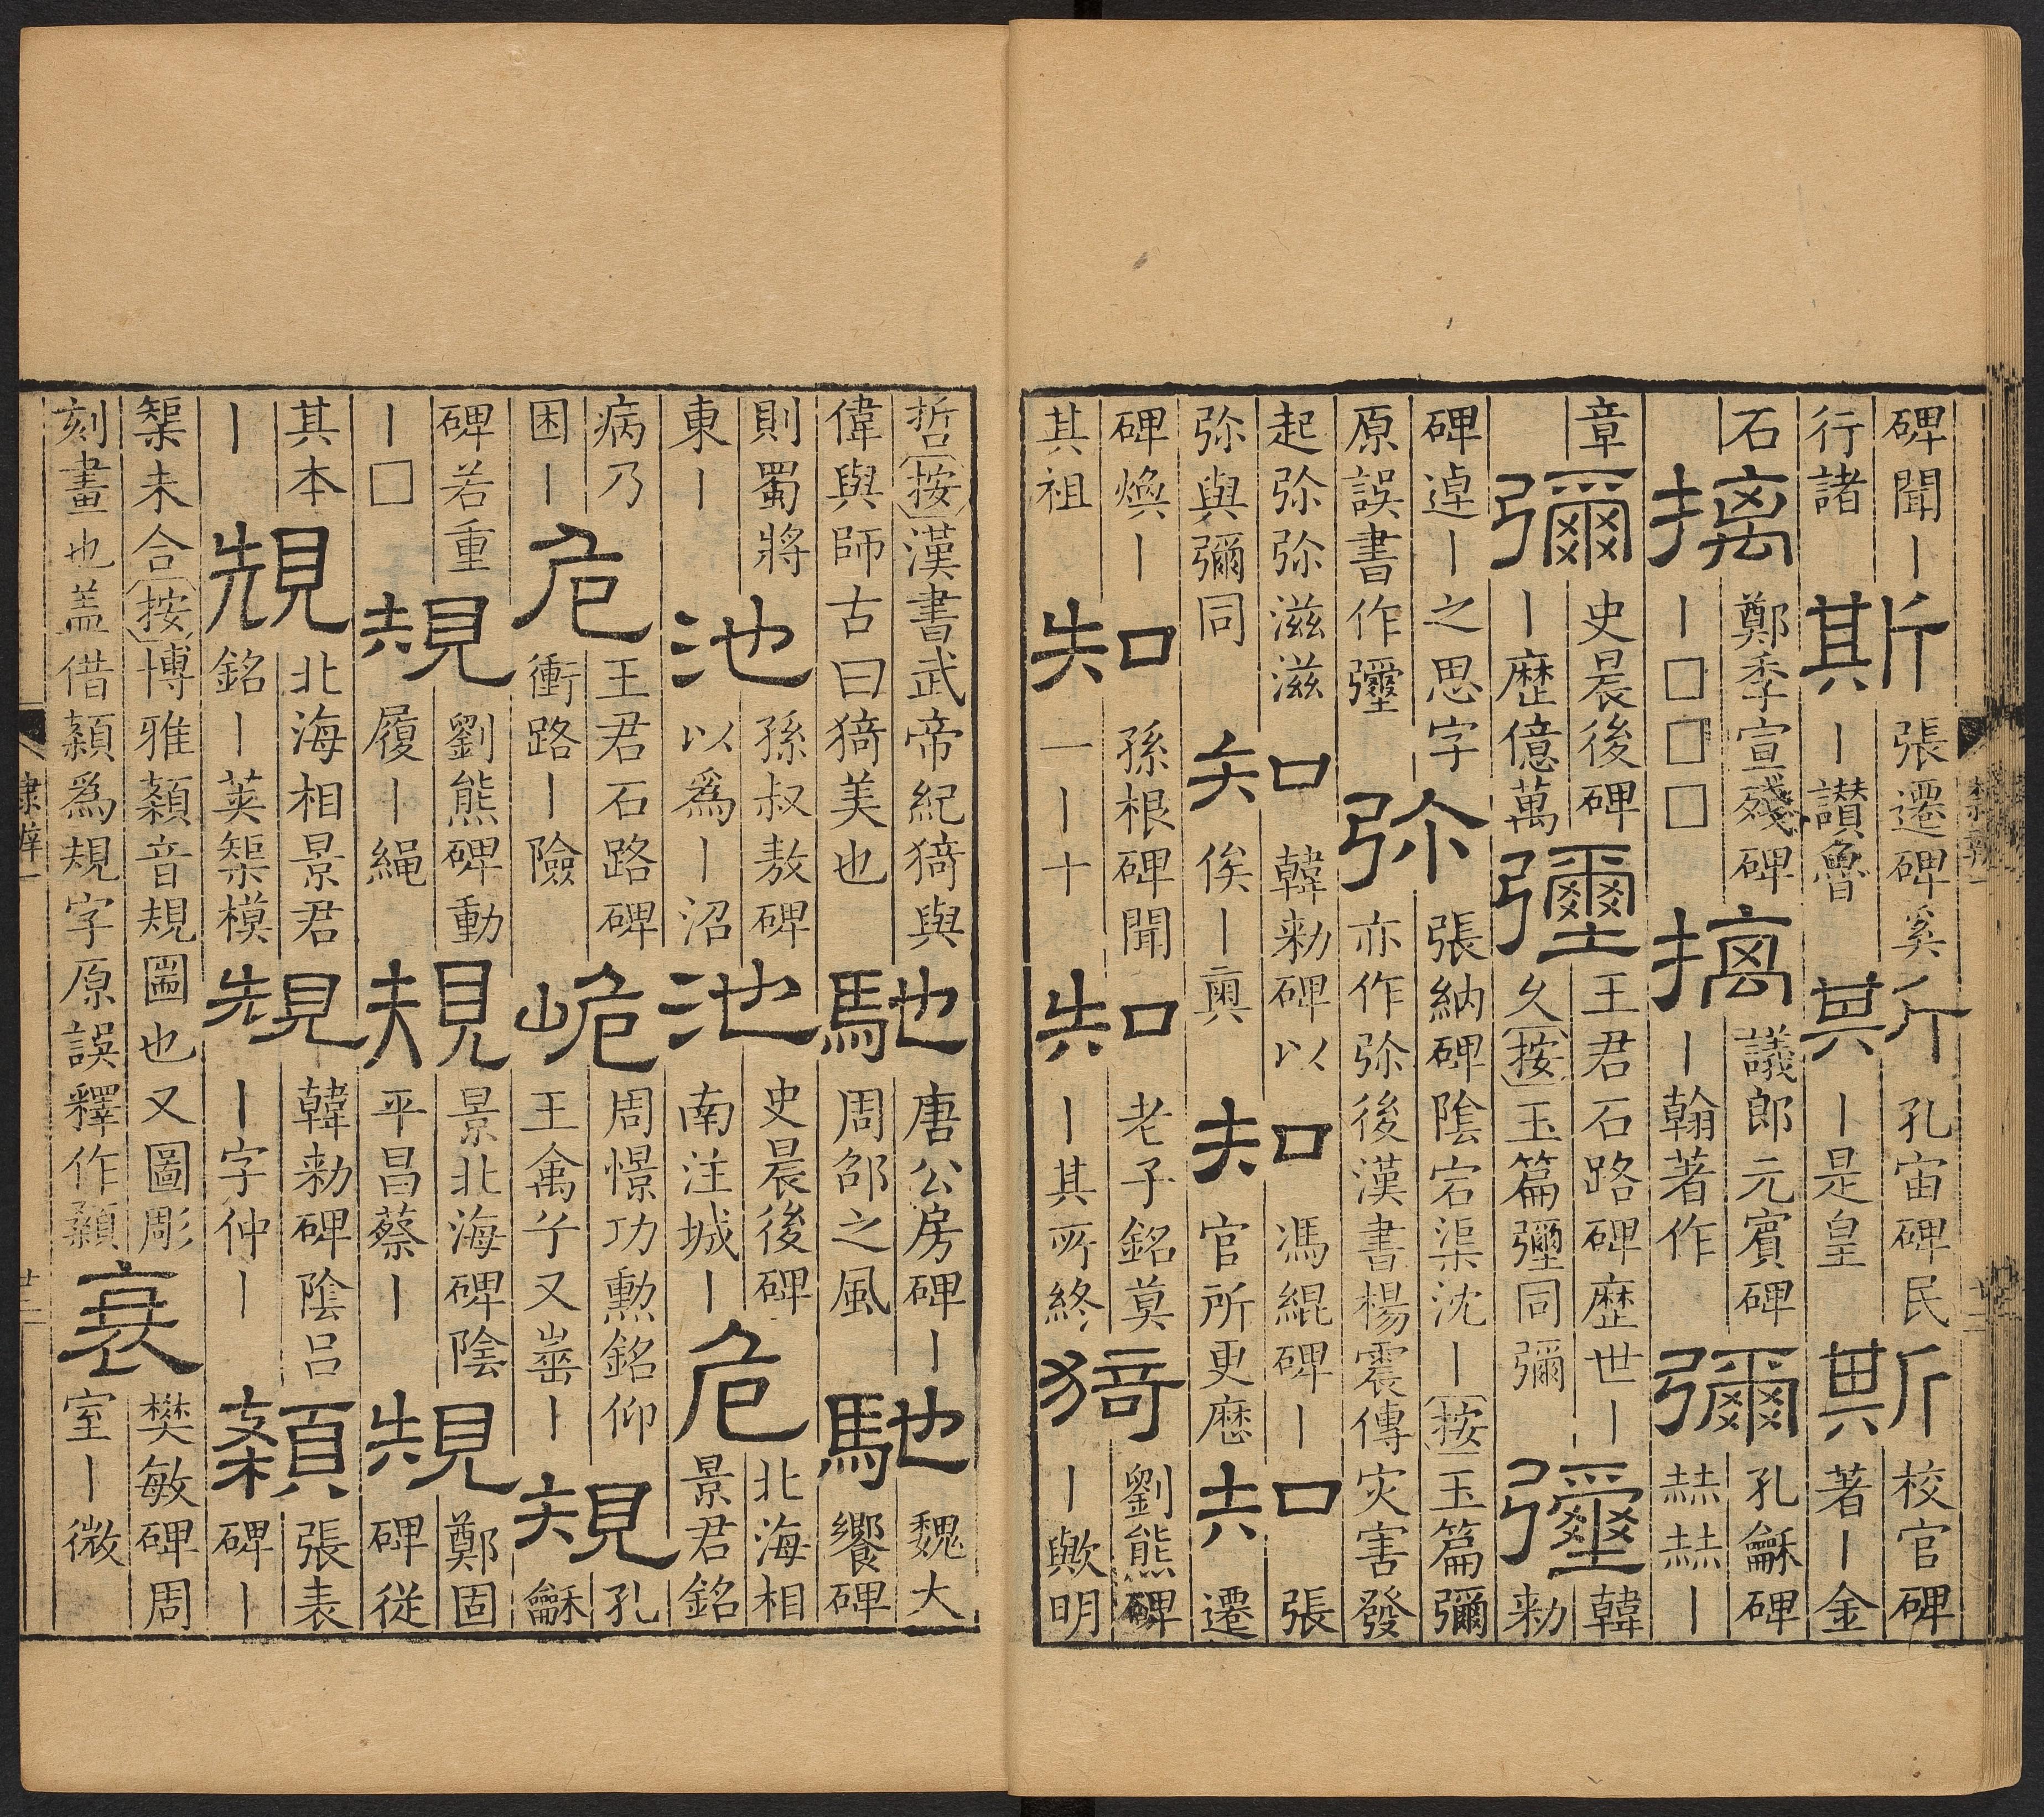 碑聞丨行諸 斯 張遷碑奚丨讃魯 斯 孔宙碑民丨是皇 斯 校官碑著丨金
石 摛 鄭季宣殘碑丨□□□ 摛 議郎元賓碑丨翰著作 彌 孔龢碑赫赫丨
章 彌 史晨後碑丨歷億萬 瓕 王君石路碑歷世丨久按玉篇瓕同彌 瓕 韓勑
碑逴丨之思字原誤書作瓕 弥 張納碑陰宕渠沈丨按玉篇彌亦作弥後漢書楊震傳灾害發
起弥弥滋滋弥與彌同 知 韓勑碑以俟丨奥 知 馮緄碑丨官所更歷 知 張遷
碑煥丨其祖 知 孫根碑聞一丨十 知 老子銘莫丨其所終 猗 劉熊碑丨歟明
哲按漢書武帝紀猗與偉與師古曰猗美也 馳 唐公房碑丨周邵之風 馳 魏大饗碑
則蜀將東丨 池 孫叔敖碑以爲丨沼 池 史晨後碑南注城丨 危 北海相景君銘
病乃困丨 危 王君石路碑衝路丨險 峗 周憬功勲銘仰王禽兮又崋丨 規 孔龢
碑若重丨□ 規 劉熊碑動履丨繩 規 景北海碑陰平昌蔡丨 規 鄭固碑從
其本丨 規 北海相景君銘丨英榘模 規 韓勑碑陰呂丨字仲丨 䫌 張表碑丨
榘未合按博雅䫌音規圖也又圖彫刻畫也盖借䫌爲規字原誤釋作䫌 衰 樊敏碑周室丨微